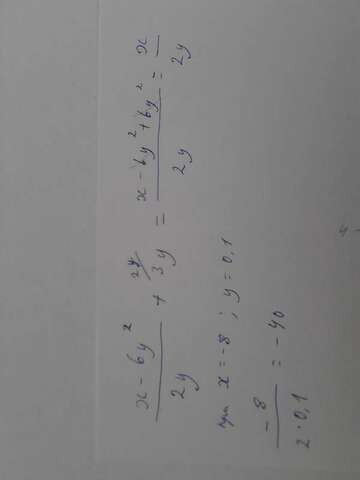 x - 6y² / 2y + 3y ^2y = x - 6y² + 6y² / 2y = x / 2y
при x = -8 ; y = 0,1
-8 / 2·0,1 = -40